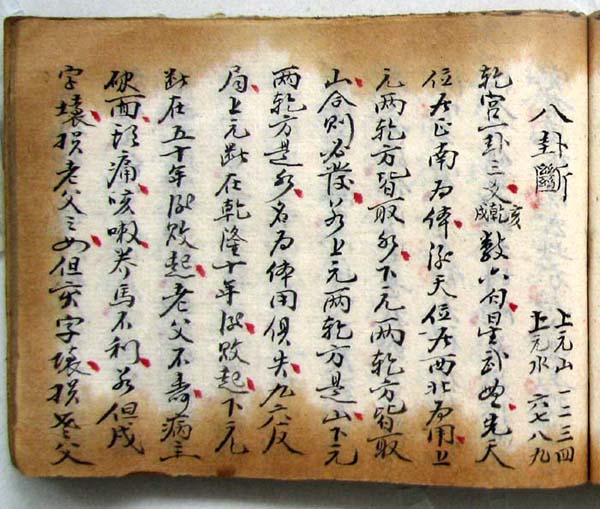 八卦斷
上元山 一二三四
元水 六七八九
乾宮一卦三爻戌乾亥數六白星武曲先天
位居正南為体後天位居西北為用上
元兩乾方皆取水下元兩乾方皆取
山合則必發若上元兩乾方是山下元
兩乾方是水名為体用俱失九六反
局上元斷在乾隆十年後敗起下元
斷在五十年後敗起老父不壽病主
破面頭痛咳嗽养馬不利若但戌
字壞損老父三女但亥字壞損老父